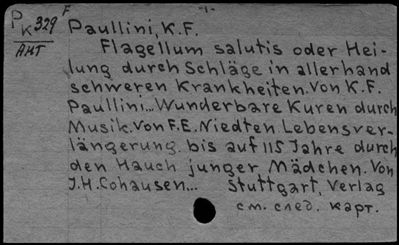 -1-
Pк 329 F
АНТ
Paullini, K.F.
Flagellum salutis oder Hei-
lung durch Schläge in allerhand
schweren Krankheiten. Von K.F.
Paullini... Wunderbare Kuren durch
Musik. Von F.E. Niedten Lebensver-
längerung bis auf 115 Jahre durch
den Hauch junger Mädchen. Von
J.H. Cohausen... Stuttgart, Verlag
см. след. карт.